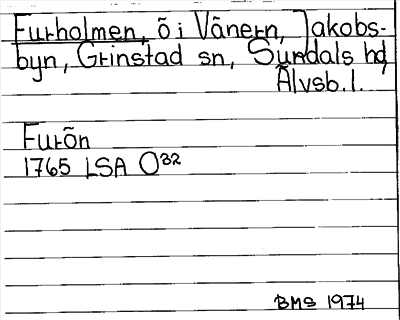 Furholmen, ö i Vänern, Jakobs-
byn, Grinstad sn, Sundals hd,
Älvsb. l.
Furön
1765 LSA O³²
BMS 1974